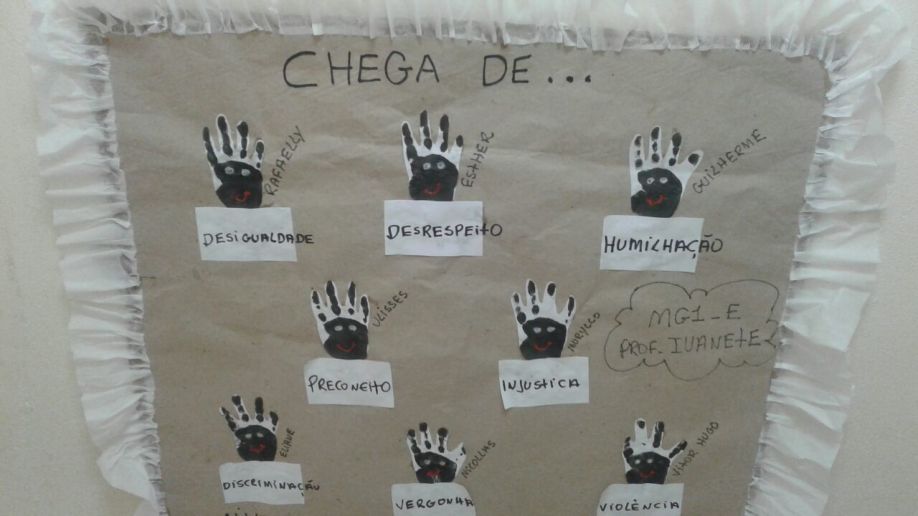 CHEGA DE...
RAFAELLY
ESTHER
GUILHERME
DESIGUALDADE
DESRESPEITO
HUMILHAÇÃO
ULISSES
MURYLLO
MG1-E
PROF. IVANETE
PRECONEITO
INJUSTICA
ELIANE
NICOLLAS
VITOR HUGO
DISCRIMINAÇÃO
VERGONHA
VIOLÊNCIA